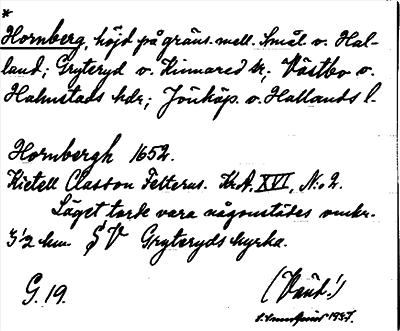 *
Hornberg, höjd på gräns. mell. Smål. o. Hal-
land; Gryteryd o. Kinnared sr; Västbo o.
Halmstads hdr; Jönköp. o. Hallands l.
Hornbergh 1652.
Kietell Classon Felterus. Kr.A. XVI, N:o 2.
Läget torde vara någonstädes omkr.
3 1/2 km. S V Gryteryds kyrka.
G. 19.
(Vänd!)
1937.